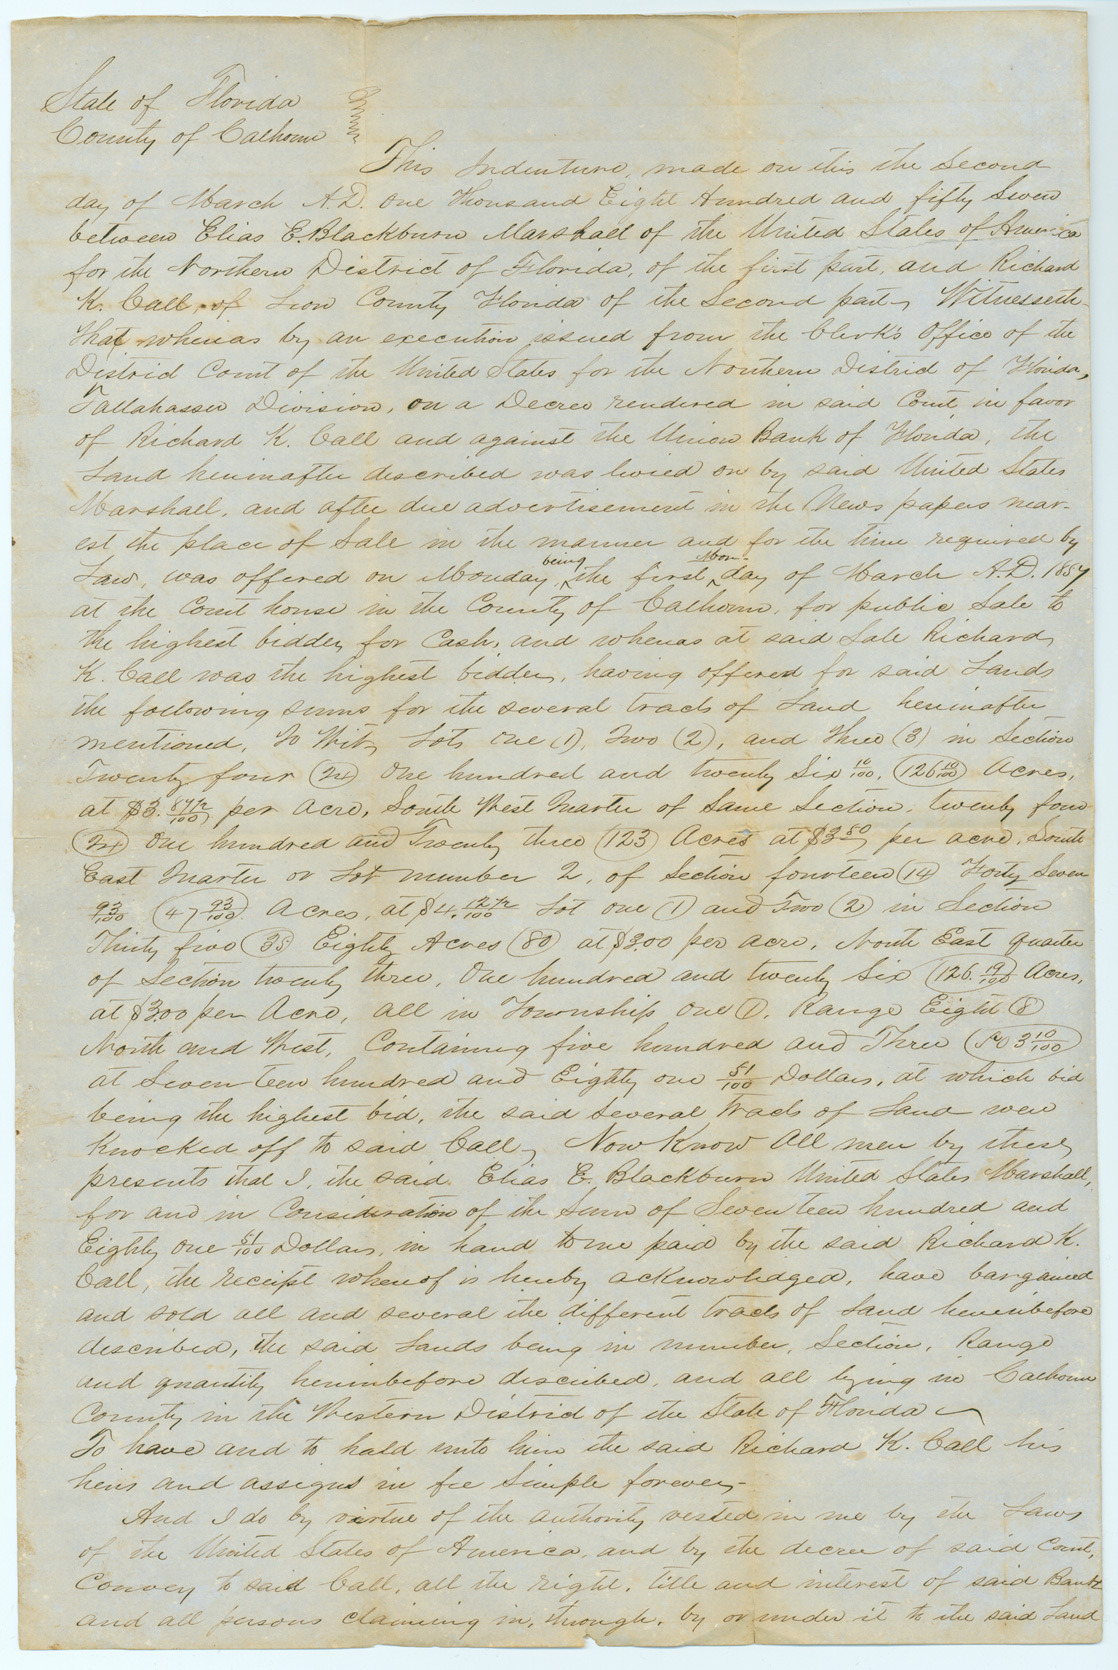 State of Florida
County of Calhoun
This Indenture, made on this the Second
day of March A.D. One Thousand Eight Hundred and fifty Seven
between Elias E. Blackburn Marshall of the United States of America
for the Northern District of Florida, of the first part, and Richard
K. Call of Leon County Florida of the Second part, Witnesseth
that whereas by an execution issued from the Clerk's Office of the
District Court of the United States for the Northern District of Florida,
Tallahassee Division, on a Decree rendered in said Court in favor
of Richard K. Call and against the Union Bank of Florida, the
Land hereinafter described was levied on by said United States
Marshall, and after due advertisement in the News papers near-
est the place of Sale in the manner and for the time required by
Law, was offered on Monday being, the first Mon- day of March A.D. 1857
at the Court house in the County of Calhoun, for public Sale to
the highest bidder, for Cash, and whereas at said Sale Richard
K. Call was the highest bidder, having offered for said Lands
the following sums for the several tracts of Land hereinafter
mentioned, To Wit, Lots One (1), Two (2), and Three (3) in Section
Twenty four (24) One hundred and twenty Six 10/100, (126 10/100) Acres,
at $3. 87 1/2/100 per acre, South West Quarter of Same Section, twenty four
(24) One hundred and Twenty three (123) Acres at $3 50 per acre, South
East Quarter or Lot number 2, of Section fourteen (14) Forty Seven
93/100 (47 93/100) Acres, at $4. 12 1/2/100 Lot one (1) and Two (2) in Section
Thirty five (35) Eighty Acres (80) at $3.00 per acre, North East quarter
of Section twenty three, One hundred and twenty Six (126. 17/100) Acres,
at $3.00 per Acre, all in Township One (1), Range Eight (8)
North and West, Containing five hundred and Three (503 10/100)
at Seventeen hundred and Eighty one 51/100 Dollars, at which bid
being the highest bid, the said Several tracts of Land were
Knocked off to said Call, Now Know All men by these
presents that I, the said Elias E. Blackburn United States Marshall,
for and in Consideration of the Sum of Seventeen hundred and
Eighty One 51/100 Dollars, in hand to me paid by the said Richard K.
Call, the receipt whereof is hereby acknowledged, have bargained
and sold all and several the different tracts of Land hereinbefore
described, the said Lands being in number, Section, Range
and quantity hereinbefore discribed, and all lying in Calhoun
County in the Western District of the State of Florida
To have and to hald unto him the said Richard K. Call his
heirs and assigns in fee Simple forever,
And I do by virtue of the authority vested in me by the Laws
of the United States of America, and by the decree of said Court,
Convey to said Call, all the right, title and interest of said Bank
and all persons claiming in, through, by or under it to the said Land